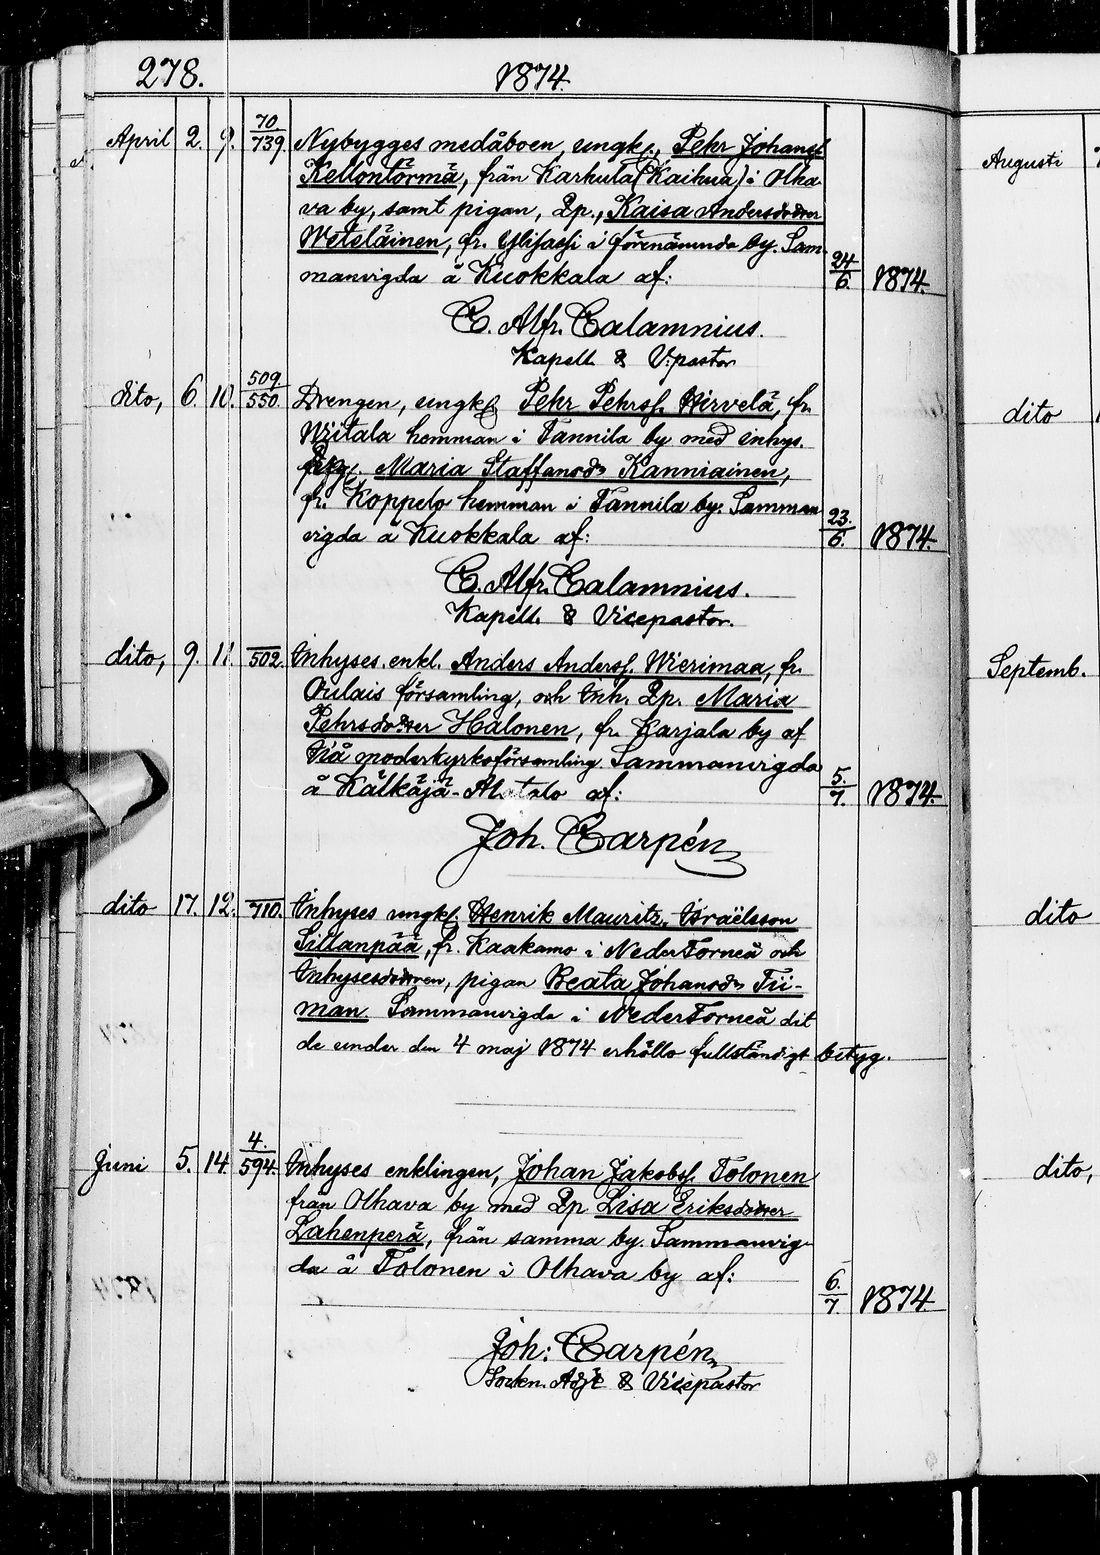 278. 1874.
April 2. 9. 70/739 Nybygges medåboen, ungk., Pehr Johansf
Kellontörmä, från Karhula (Kaihua) i Olha-
va by, samt pigan, Qp., Kaisa Andersdotter
Weteläinen, fr. i förenämnda by. Sam-
manvigda å Kuokkala af: 24/6. 1874.
C. Alfr. Calamnius.
Kapell. & V.pastor
dito, 6. 10. 509/550. Drengen, ungk. Pehr Pehrsf. Hirvelä, fr.
Wiitala hemman i Tannila by med inhys.
Maria Staffansdr Kanniainen,
fr. Koppelo hemman i Tannila by. Samman
vigda å Kuokkala af: 23./6. 1874.
C. Alfr. Calamnius.
Kapell. & Vicepastor.
dito, 9. 11. 502. Inhyses. enkl. Anders Andersf. Wierimaa, fr.
Oulais församling, och Inh. Qp. Maria
Pehrsdotter Halonen, fr. Karjala by af
Iiå moderkyrkoförsamling. Sammanvigda
å Kälkäjä-Matalo af: 5./7. 1874.
Joh. Carpén
dito 17. 12. 710. Inhyses ungk. Henrik Mauritz Israëlsson
Sillanpää, fr. Kaakamo i NederTorneå och
Inhysesdottren, pigan Beata Johansdr Tii-
man. Sammanvigda i NederTorneå dit
de under den 4 maj 1874 erhöllo fullständigt betyg.
Juni 5. 14. 4./594. Inhyses enklingen, Johan Jakobsf. Tolonen
från Olhava by med Qp Lisa Eriksdotter
Lahenperä, från samma by. Sammanvig-
da å Tolonen i Olhava by af: 6./7. 1874
Joh: Carpén
Socken. Adj: & Vicepastor
Augusti
dito
Septemb.
dito
dito,